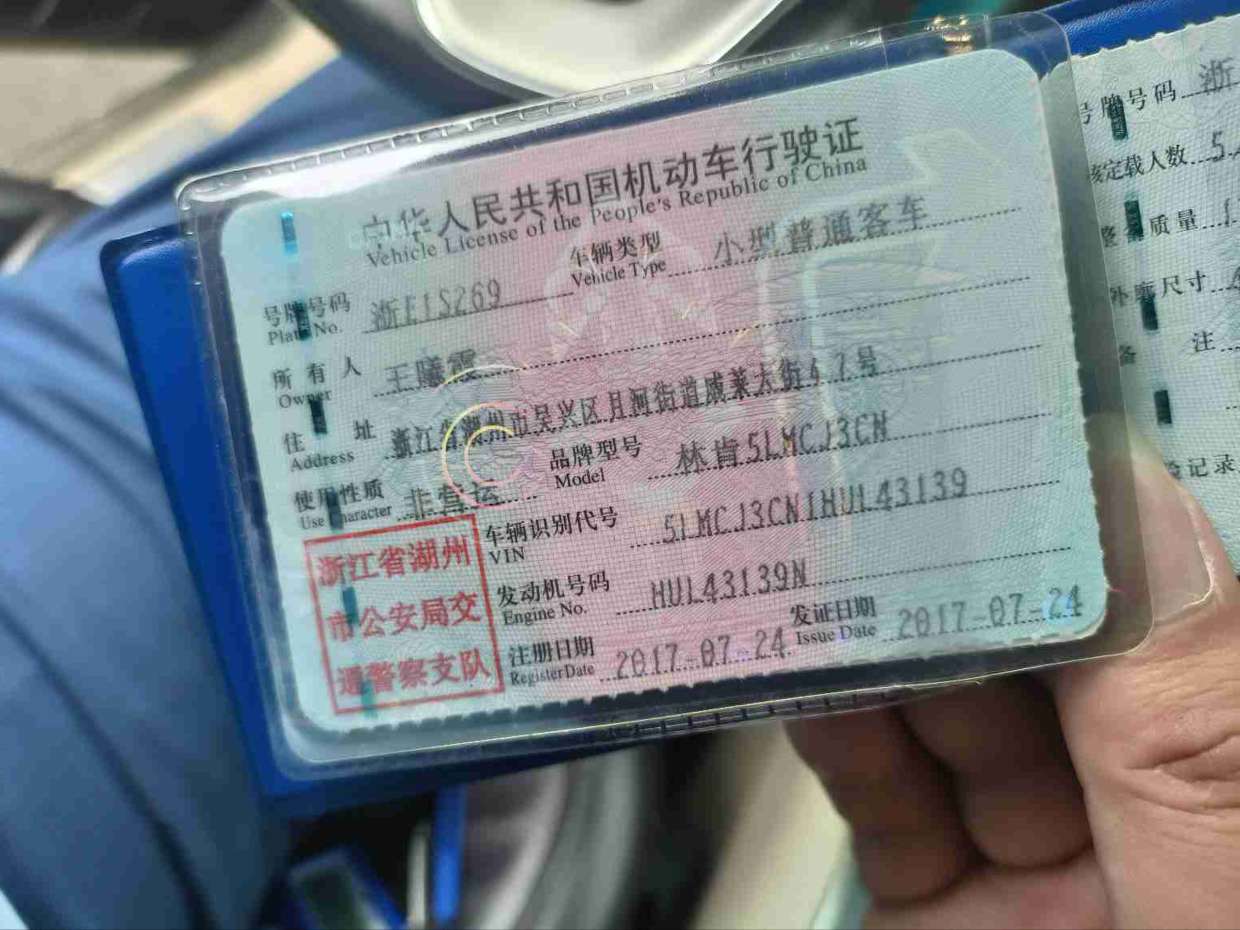 中华人民共和国机动车行驶证
Vehicle License of the People's Republic of China
号牌号码 浙E1S269 车辆类型 小型普通客车
Plate No. Vehicle Type
所有人 王曦霞
Owner
住址 浙江省湖州市吴兴区月河街道威莱大街47号
Address
使用性质 非营运 品牌型号 林肯5LMCJ3CN
Use Character Model
车辆识别代号 5LMCJ3CN1HUL43139
VIN
发动机号码 HUL43139N
Engine No.
注册日期 2017-07-24 发证日期 2017-07-24
Register Date Issue Date
浙江省湖州
市公安局交
通警察支队
号牌号码 浙
核定载人数 5
整备质量 1
外廓尺寸 4
备注
检验记录